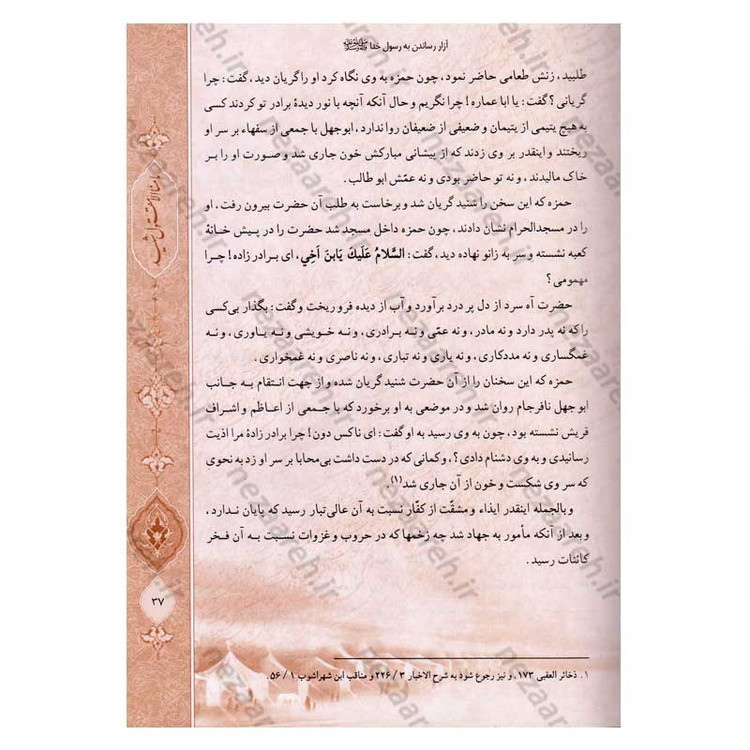 آزار رساندن به رسول خدا ﷺ
طلبید، زنش طعامی حاضر نمود، چون حمزه به وی نگاه کرد او را گریان دید، گفت: چرا
گریانی؟ گفت: یا ابا عماره! چرا نگریم و حال آنکه آنچه با نور دیدهٔ برادر تو کردند کسی
به هیچ یتیمی از یتیمان و ضعیفی از ضعیفان روا ندارد، ابوجهل با جمعی از سفهاء بر سر او
ریختند و اینقدر بر وی زدند که از پیشانی مبارکش خون جاری شد و صورت او را بر
خاک مالیدند، و نه تو حاضر بودی و نه عمّش ابو طالب.
حمزه که این سخن را شنید گریان شد و برخاست به طلب آن حضرت بیرون رفت، او
را در مسجدالحرام نشان دادند، چون حمزه داخل مسجد شد حضرت را در پیش خانهٔ
کعبه نشسته و سر به زانو نهاده دید، گفت: السَّلامُ عَلَیكَ یَابنَ اَخِي، ای برادر زاده! چرا
مهمومی؟
حضرت آه سرد از دل پر درد برآورد و آب از دیده فرو ریخت و گفت: بگذار بی‌کسی
را که نه پدر دارد و نه مادر، و نه عمّی و نه برادری، و نه خویشی و نه یاوری، و نه
غمگساری و نه مددکاری، و نه یاری و نه تباری، و نه ناصری و نه غمخواری.
حمزه که این سخنان را از آن حضرت شنید گریان شده و از جهت انتقام به جانب
ابو جهل نافرجام روان شد و در موضعی به او برخورد که با جمعی از اعاظم و اشراف
قریش نشسته بود، چون به وی رسید به او گفت: ای ناکس دون! چرا برادر زادهٔ مرا اذیت
رسانیدی و به وی دشنام دادی؟، و کمانی که در دست داشت بی‌محابا بر سر او زد به نحوی
که سر وی شکست و خون از آن جاری شد(۱).
و بالجمله اینقدر ایذاء و مشقّت از کفّار نسبت به آن عالی‌تبار رسید که پایان ندارد،
و بعد از آنکه مأمور به جهاد شد چه زخمها که در حروب و غزوات نسبت به آن فخر
کائنات رسید.
۳۷
۱. ذخائر العقبی ۱۷۳، و نیز رجوع شود به شرح الاخبار ۳ / ۲۲۶ و مناقب ابن شهراشوب ۱ / ۵۶.
nezaareh.ir